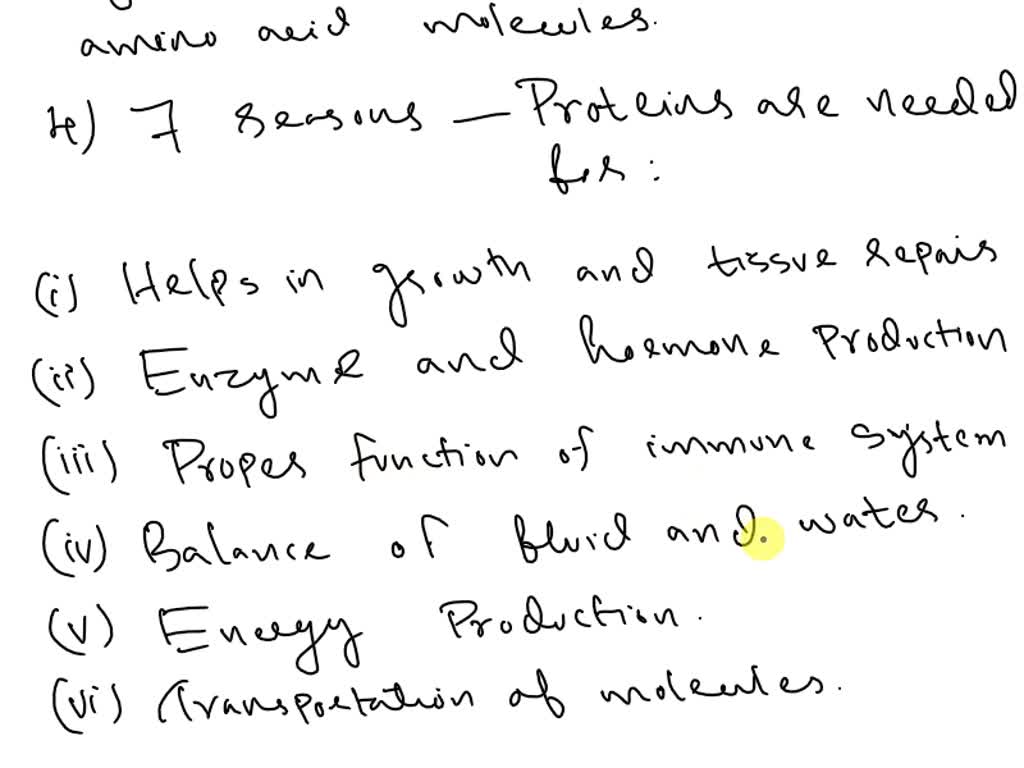 amino acid molecules.
4) 7 reasons — Proteins are needed
for :
(i) Helps in growth and tissue repair
(ii) Enzyme and hormone production
(iii) Proper function of immune system
(iv) Balance of fluid and water.
(v) Energy Production.
(vi) Transportation of molecules.